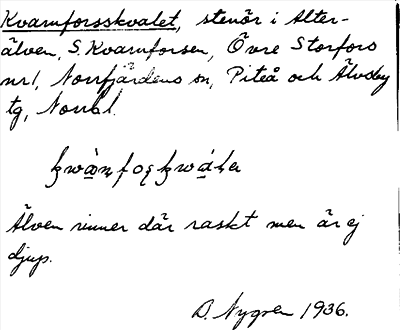 Kvarnforsskvalet, stenör i Alter-
älven, S. Kvarnforsen, Övre Storfors
nr 1, Norrfjärdens sn, Piteå och Älvsby
tg, Norrb l.
Älven rinner där raskt men är ej
djup.
D. Nygren 1936.